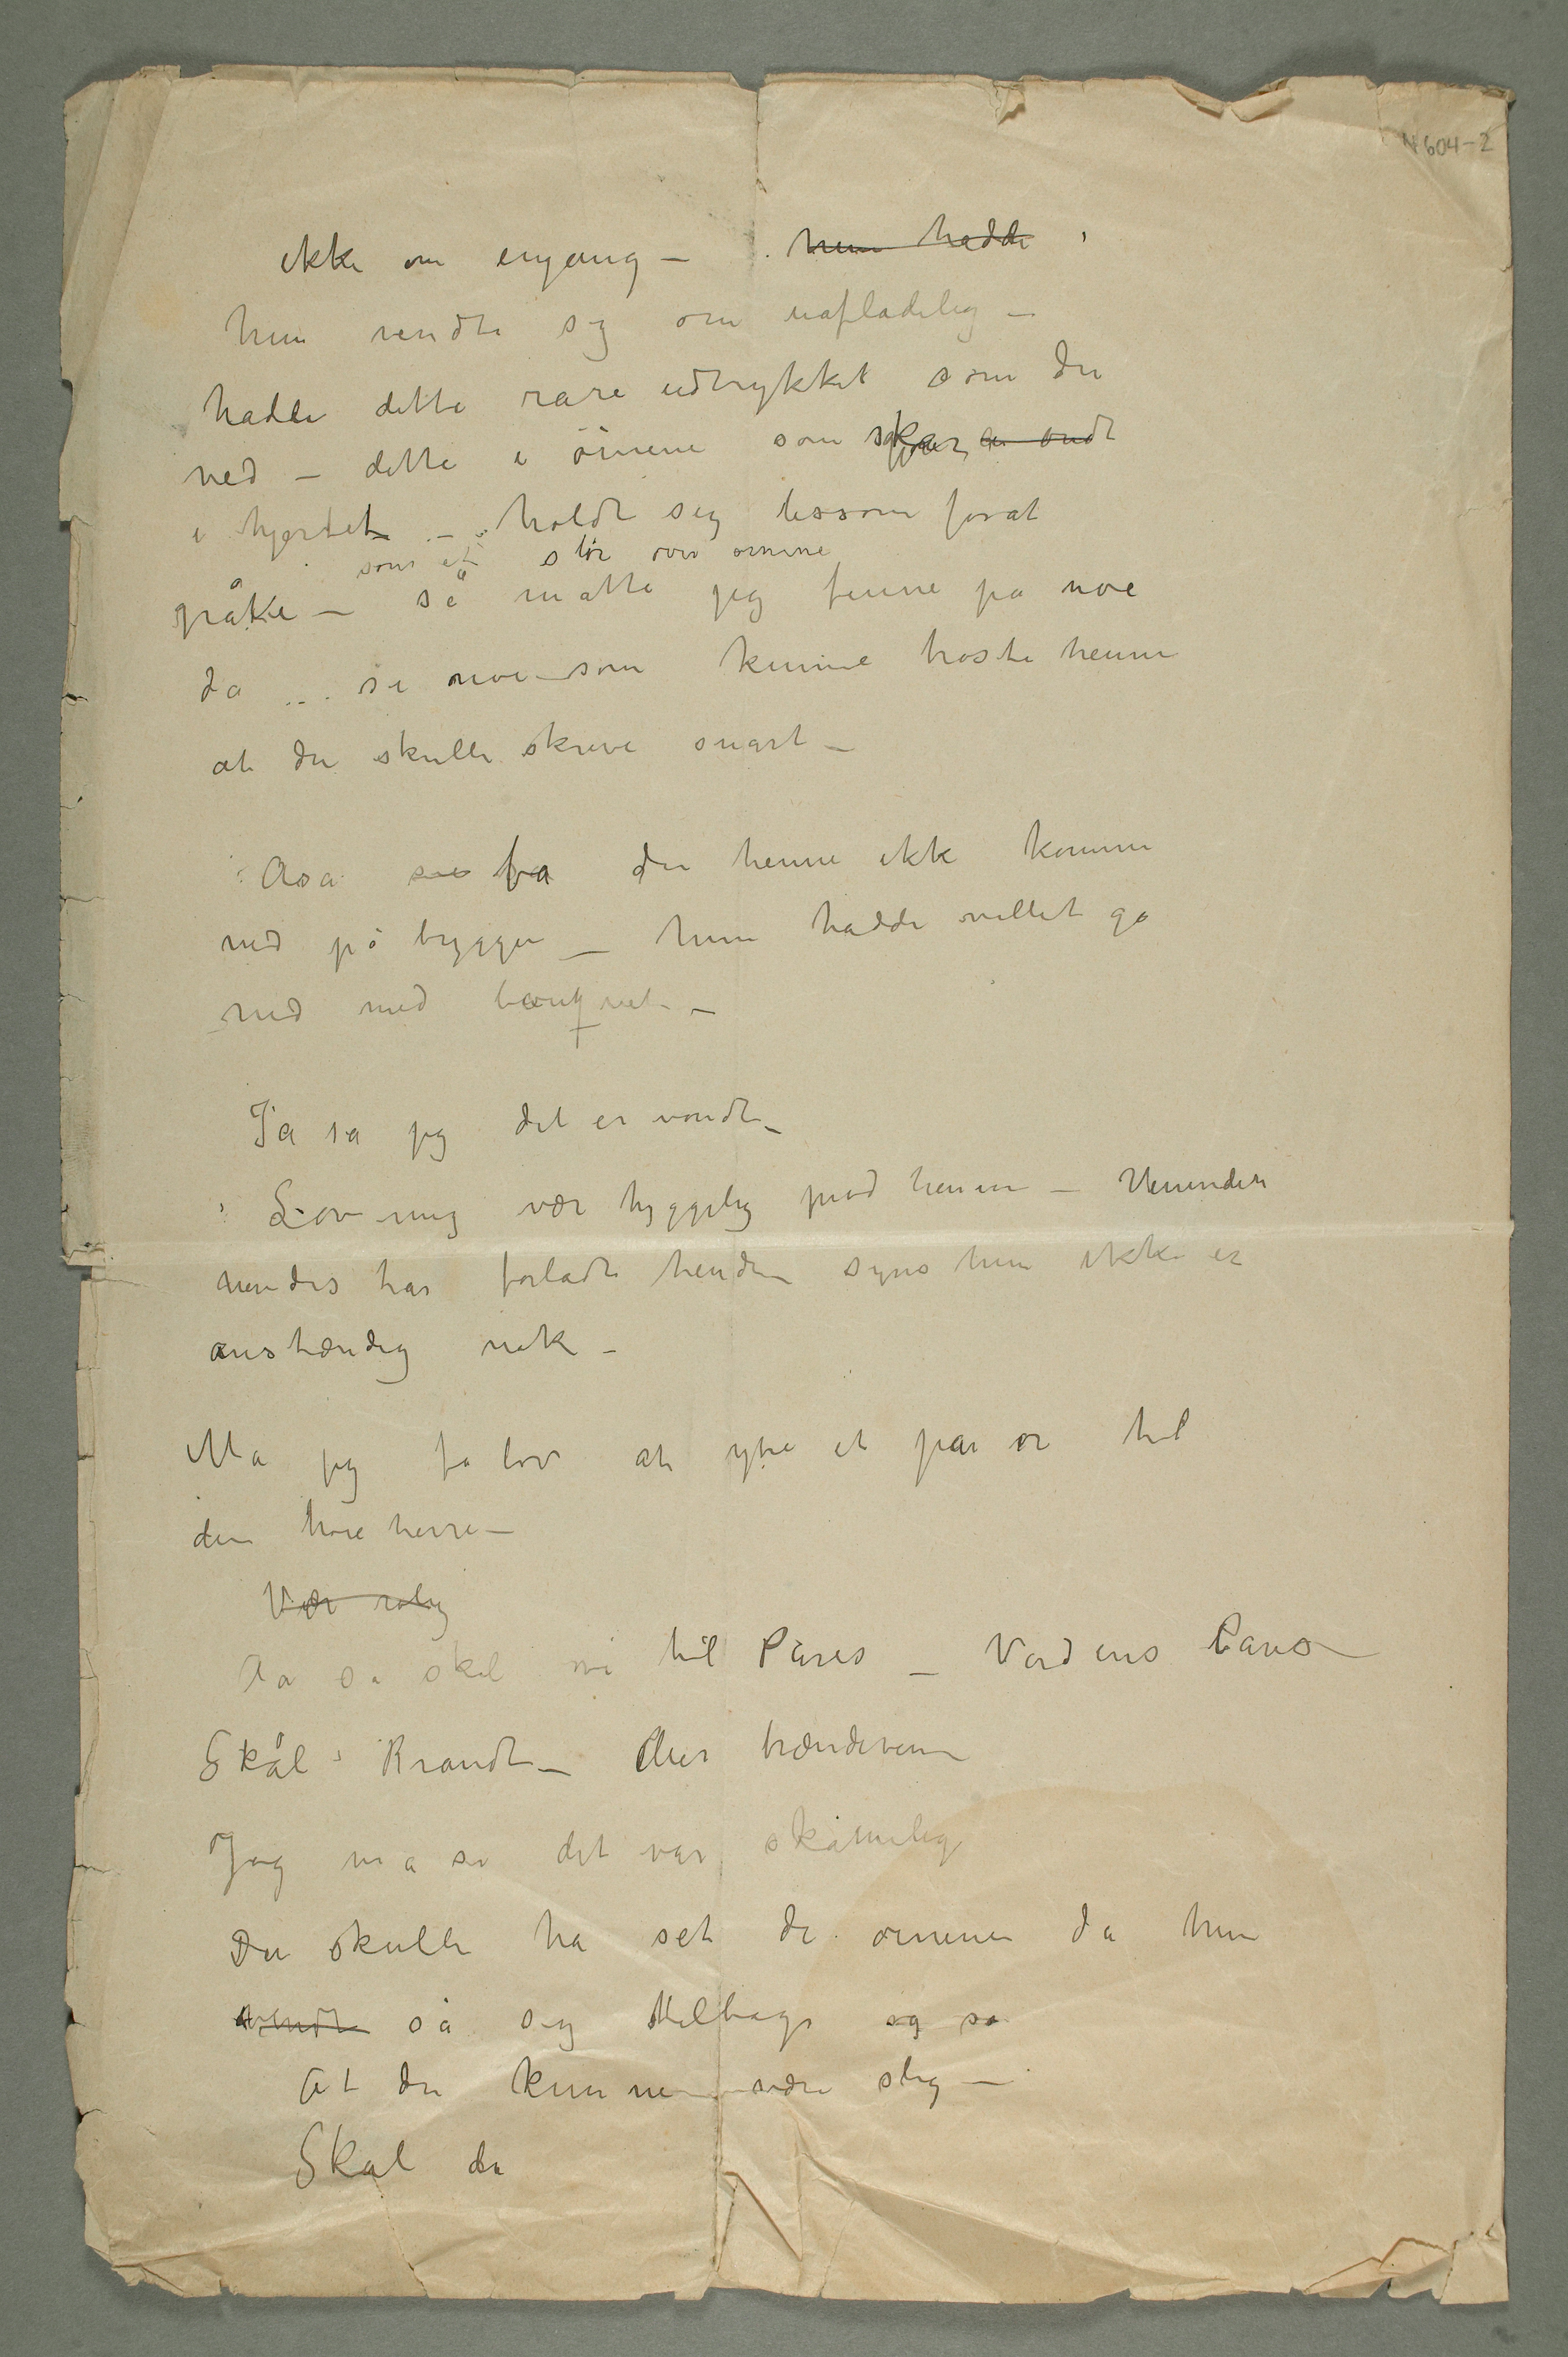 N 604-2
ikke om engang – hun hadde
hun vendte sig om uafladelig –
hadde dette rare udtrykket som du
ved – dette i öinene som skjær ondt
i hjertet – holdt sig lissom forat
som et slør over öinene
gråte – så måtte jeg finne på noe
da … si noe som kunne trøste henne
at du skulle skrive snart –
Asa fra du henne ikk komme
ned på bryggen – hun hadde villet gå
ned med bouqvet –
Ja sa jeg det er vondt –
Lov mig vær hyggelig mod henne – Veninden
hendes har forladt hende – syns hun ikke er
anstændig nok –
Må jeg få lov at ytre et par or til
den høie herre –
Vær rolig
Aa så skal vi til Paris – Verdens Paris –
Skål Brandt – Mer brændevin
Jeg må si det var skammelig
Du skulle ha set de öinene da hun
vendte så sig tilbage og sa
At du kunne være slig –
Skål du